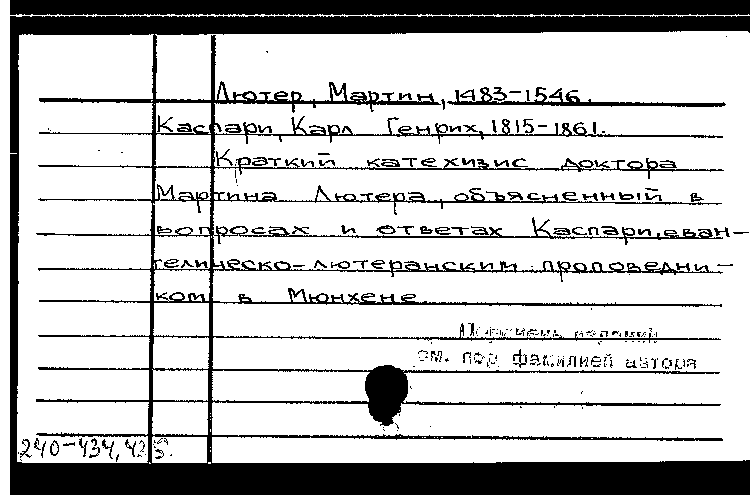 Лютер, Мартин, 1483-1546.
Каспари, Карл Генрих, 1815-1861.
Краткий катехизис доктора
Мартина Лютера, объясненный в
вопросах и ответах Каспари, еван-
гелическо-лютеранским проповедни-
ком в Мюнхене.
Перечень изданий
см. под фамилией автора
240-434,435.